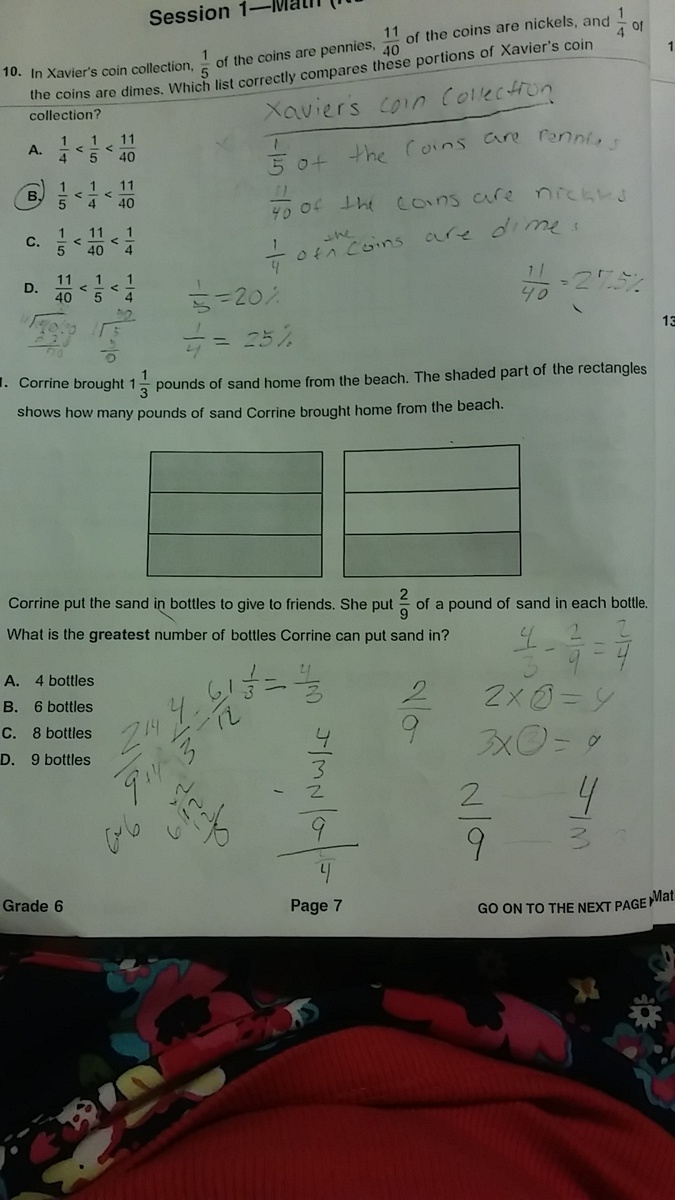 Session 1—Math
10. In Xavier's coin collection, 1/5 of the coins are pennies, 11/40 of the coins are nickels, and 1/4 of
the coins are dimes. Which list correctly compares these portions of Xavier's coin
collection?
Xavier's Coin Collection
A. 1/4 < 1/5 < 11/40
1/5 of the coins are Pennies
B. 1/5 < 1/4 < 11/40
11/40 of the coins are nickles
C. 1/5 < 11/40 < 1/4
1/4 of the coins are dimes
D. 11/40 < 1/5 < 1/4
1/5 = 20%
11/40 = 27.5%
1/4 = 25%
13
. Corrine brought 1 1/3 pounds of sand home from the beach. The shaded part of the rectangles
shows how many pounds of sand Corrine brought home from the beach.
Corrine put the sand in bottles to give to friends. She put 2/9 of a pound of sand in each bottle.
What is the greatest number of bottles Corrine can put sand in?
4/3 - 2/9 = 2/4
A. 4 bottles
1 1/3 = 4/3
2/9
B. 6 bottles
C. 8 bottles
D. 9 bottles
4/3
- 2/9
2/9 4/3
Grade 6
Page 7
GO ON TO THE NEXT PAGE
Mat